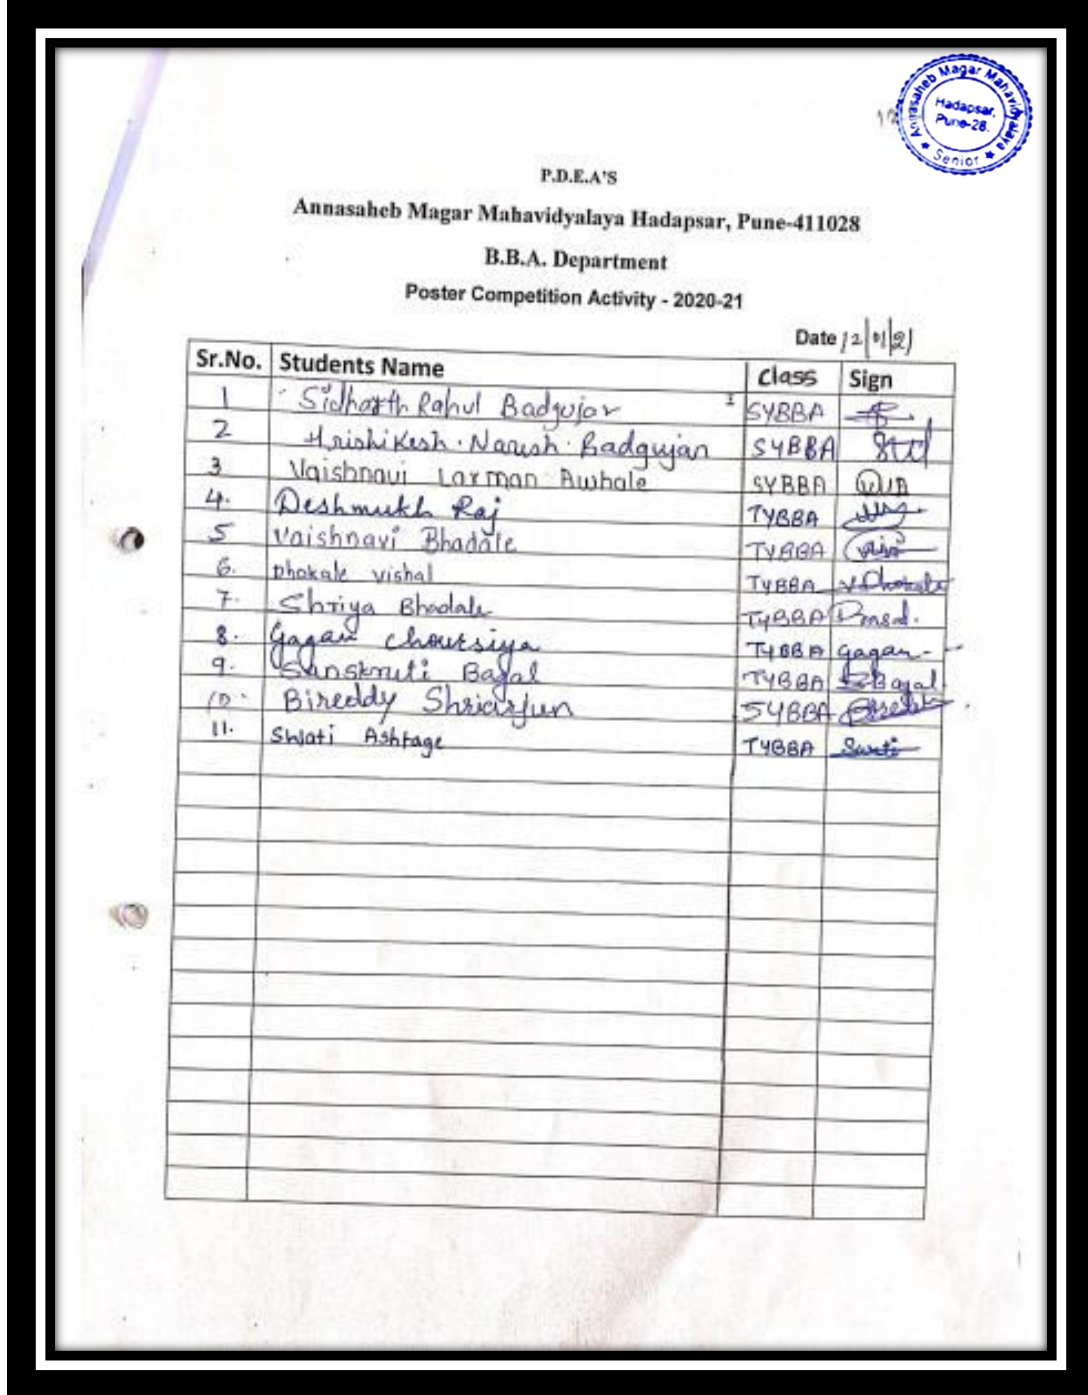 Annasaheb Magar Mahavidyalaya
Hadapsar,
Pune-28.
★ Senior ★
P.D.E.A'S
Annasaheb Magar Mahavidyalaya Hadapsar, Pune-411028
B.B.A. Department
Poster Competition Activity - 2020-21
Date 12/01/21
Sr.No. Students Name Class Sign
1 Sidharth Rahul Badgujar SYBBA
2 Hrishikesh. Naresh. Badgujar SYBBA
3 Vaishnavi Laxman Awhale SYBBA
4. Deshmukh Raj TYBBA
5 Vaishnavi Bhadale TYBBA
6. Dhokale Vishal TYBBA V.Dhokale
7. Shriya Bhadale TYBBA
8. Gagan Choursiya TYBBA gagan
9. Sanskruti Bagal TYBBA SBagal
10. Bireddy Shriarjun SYBBA
11. Swati Ashtage TYBBA Swati